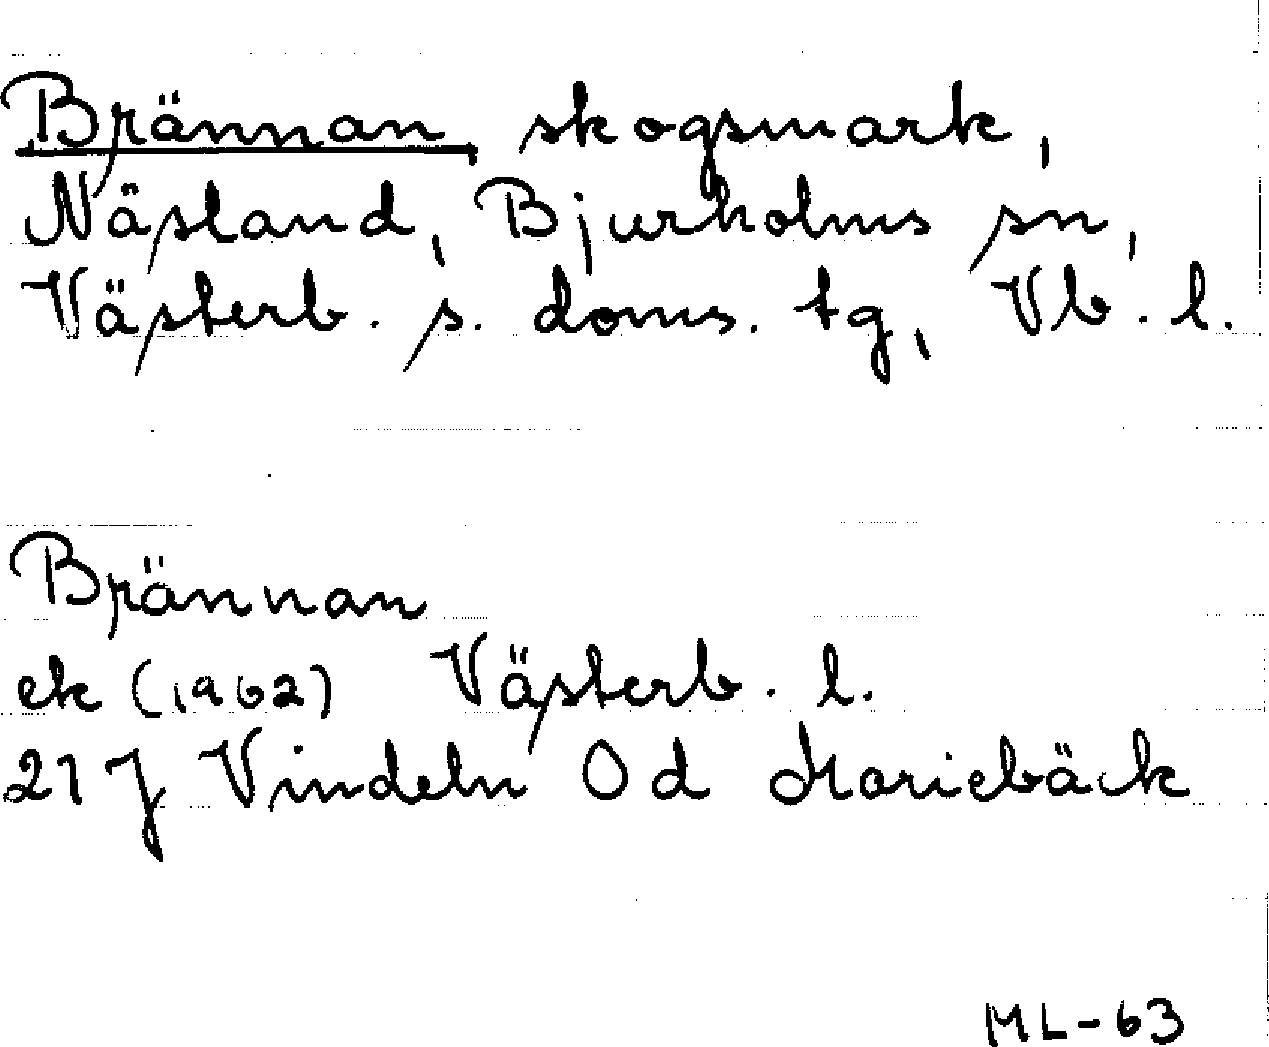 Brännan, skogsmark,
Näsland, Bjurholms sn,
Västerb. s. doms. tg, Vb. l.
Brännan
ek (1962) Västerb. l.
21 J Vindeln 0 d Mariebäck
ML-63